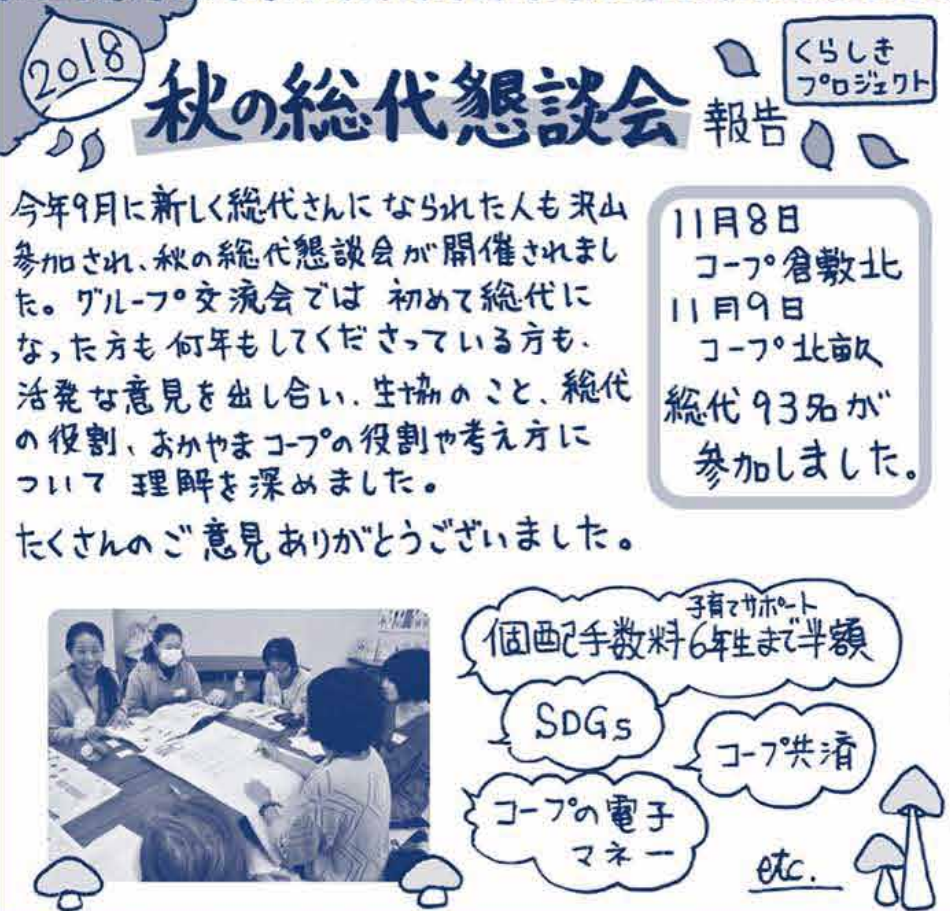 2018
秋の総代懇談会 報告
くらしき
プロジェクト
今年9月に新しく総代さんになられた人も沢山
参加され、秋の総代懇談会が開催されまし
た。グループ交流会では 初めて総代に
なった方も何年もしてくださっている方も、
活発な意見を出し合い、生協のこと、総代
の役割、おかやまコープの役割や考え方に
ついて 理解を深めました。
たくさんのご意見ありがとうございました。
11月8日
コープ倉敷北
11月9日
コープ北畝
総代93名が
参加しました。
子育てサポート
個配手数料6年生まで半額
SDGs
コープ共済
コープの電子
マネー
etc.